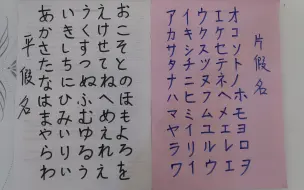 平假名
あいうえお
かきくけこ
さしすせそ
たちつてと
なにぬねの
はひふへほ
まみむめも
やいゆえよ
らりるれろ
わいうえを
片假名
アイウエオ
カキクケコ
サシスセソ
タチツテト
ナニヌネノ
ハヒフヘホ
マミムメモ
ヤイユエヨ
ラリルレロ
ワイウエヲ